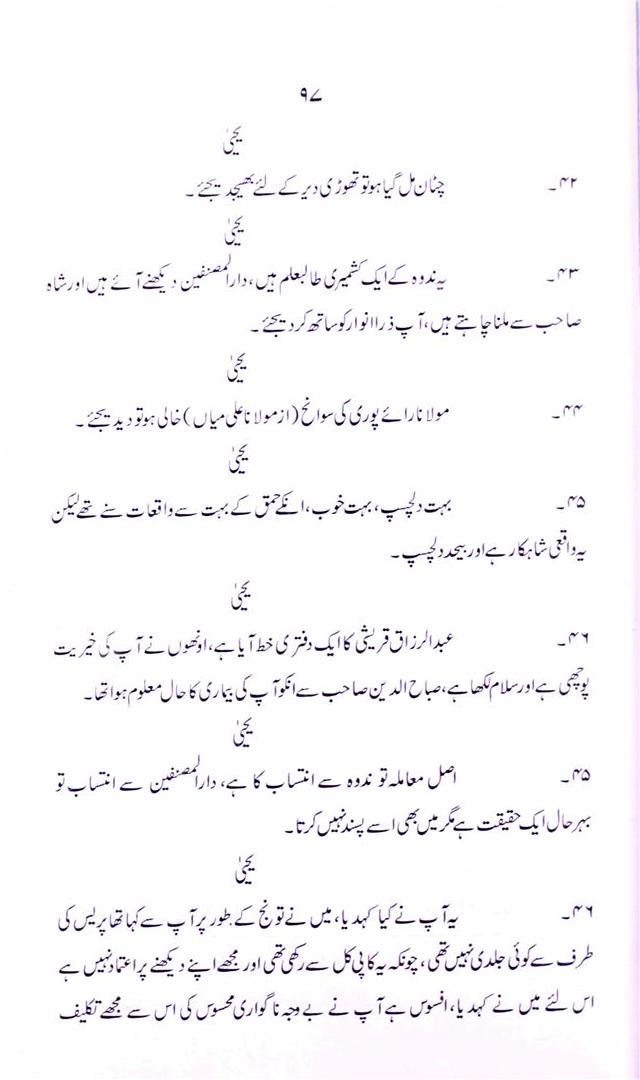 ۹۷
یحییٰ
۴۲۔ چٹان مل گیا ہو تو تھوڑی دیر کے لئے بھیجد یجئے ۔
یحییٰ
۴۳۔ یہ ندوہ کے ایک کشمیری طالبعلم ہیں، دارالمصنفین دیکھنے آئے ہیں اور شاہ
صاحب سے ملنا چاہتے ہیں، آپ ذرا انوار کو ساتھ کر دیجئے ۔
یحییٰ
۴۴۔ مولانا رائے پوری کی سوانح (از مولانا علی میاں) خالی ہو تو دیدیجئے ۔
یحییٰ
۴۵۔ بہت دلچسپ، بہت خوب، انکے حمق کے بہت سے واقعات سنے تھے لیکن
یہ واقعی شاہکار ہے اور بیحد دلچسپ ۔
یحییٰ
۴۶۔ عبدالرزاق قریشی کا ایک دفتری خط آیا ہے، اونھوں نے آپ کی خیریت
پوچھی ہے اور سلام لکھا ہے، صباح الدین صاحب سے انکو آپ کی بیماری کا حال معلوم ہوا تھا ۔
یحییٰ
۴۵۔ اصل معاملہ تو ندوہ سے انتساب کا ہے، دارالمصنفین سے انتساب تو
بہر حال ایک حقیقت ہے مگر میں بھی اسے پسند نہیں کرتا ۔
یحییٰ
۴۶۔ یہ آپ نے کیا کہدیا، میں نے تو نج کے طور پر آپ سے کہا تھا پریس کی
طرف سے کوئی جلدی نہیں تھی، چونکہ یہ کاپی کل سے رکھی تھی اور مجھے اپنے دیکھنے پر اعتماد نہیں ہے
اس لئے میں نے کہدیا، افسوس ہے آپ نے بے وجہ ناگواری محسوس کی اس سے مجھے تکلیف